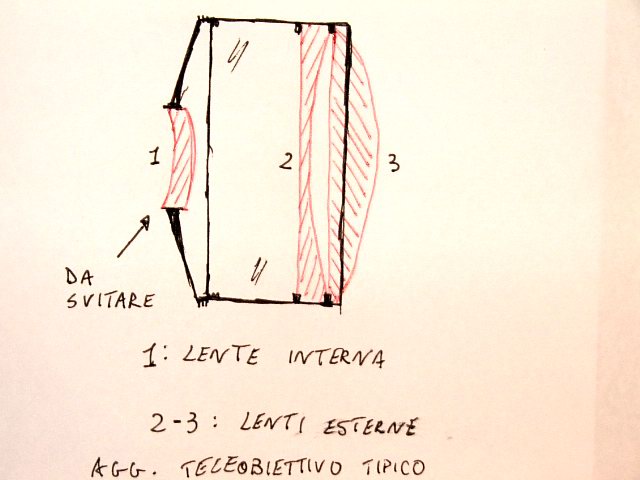 1
2
3
DA
SVITARE
1: LENTE INTERNA
2-3: LENTI ESTERNE
AGG. TELEOBIETTIVO TIPICO